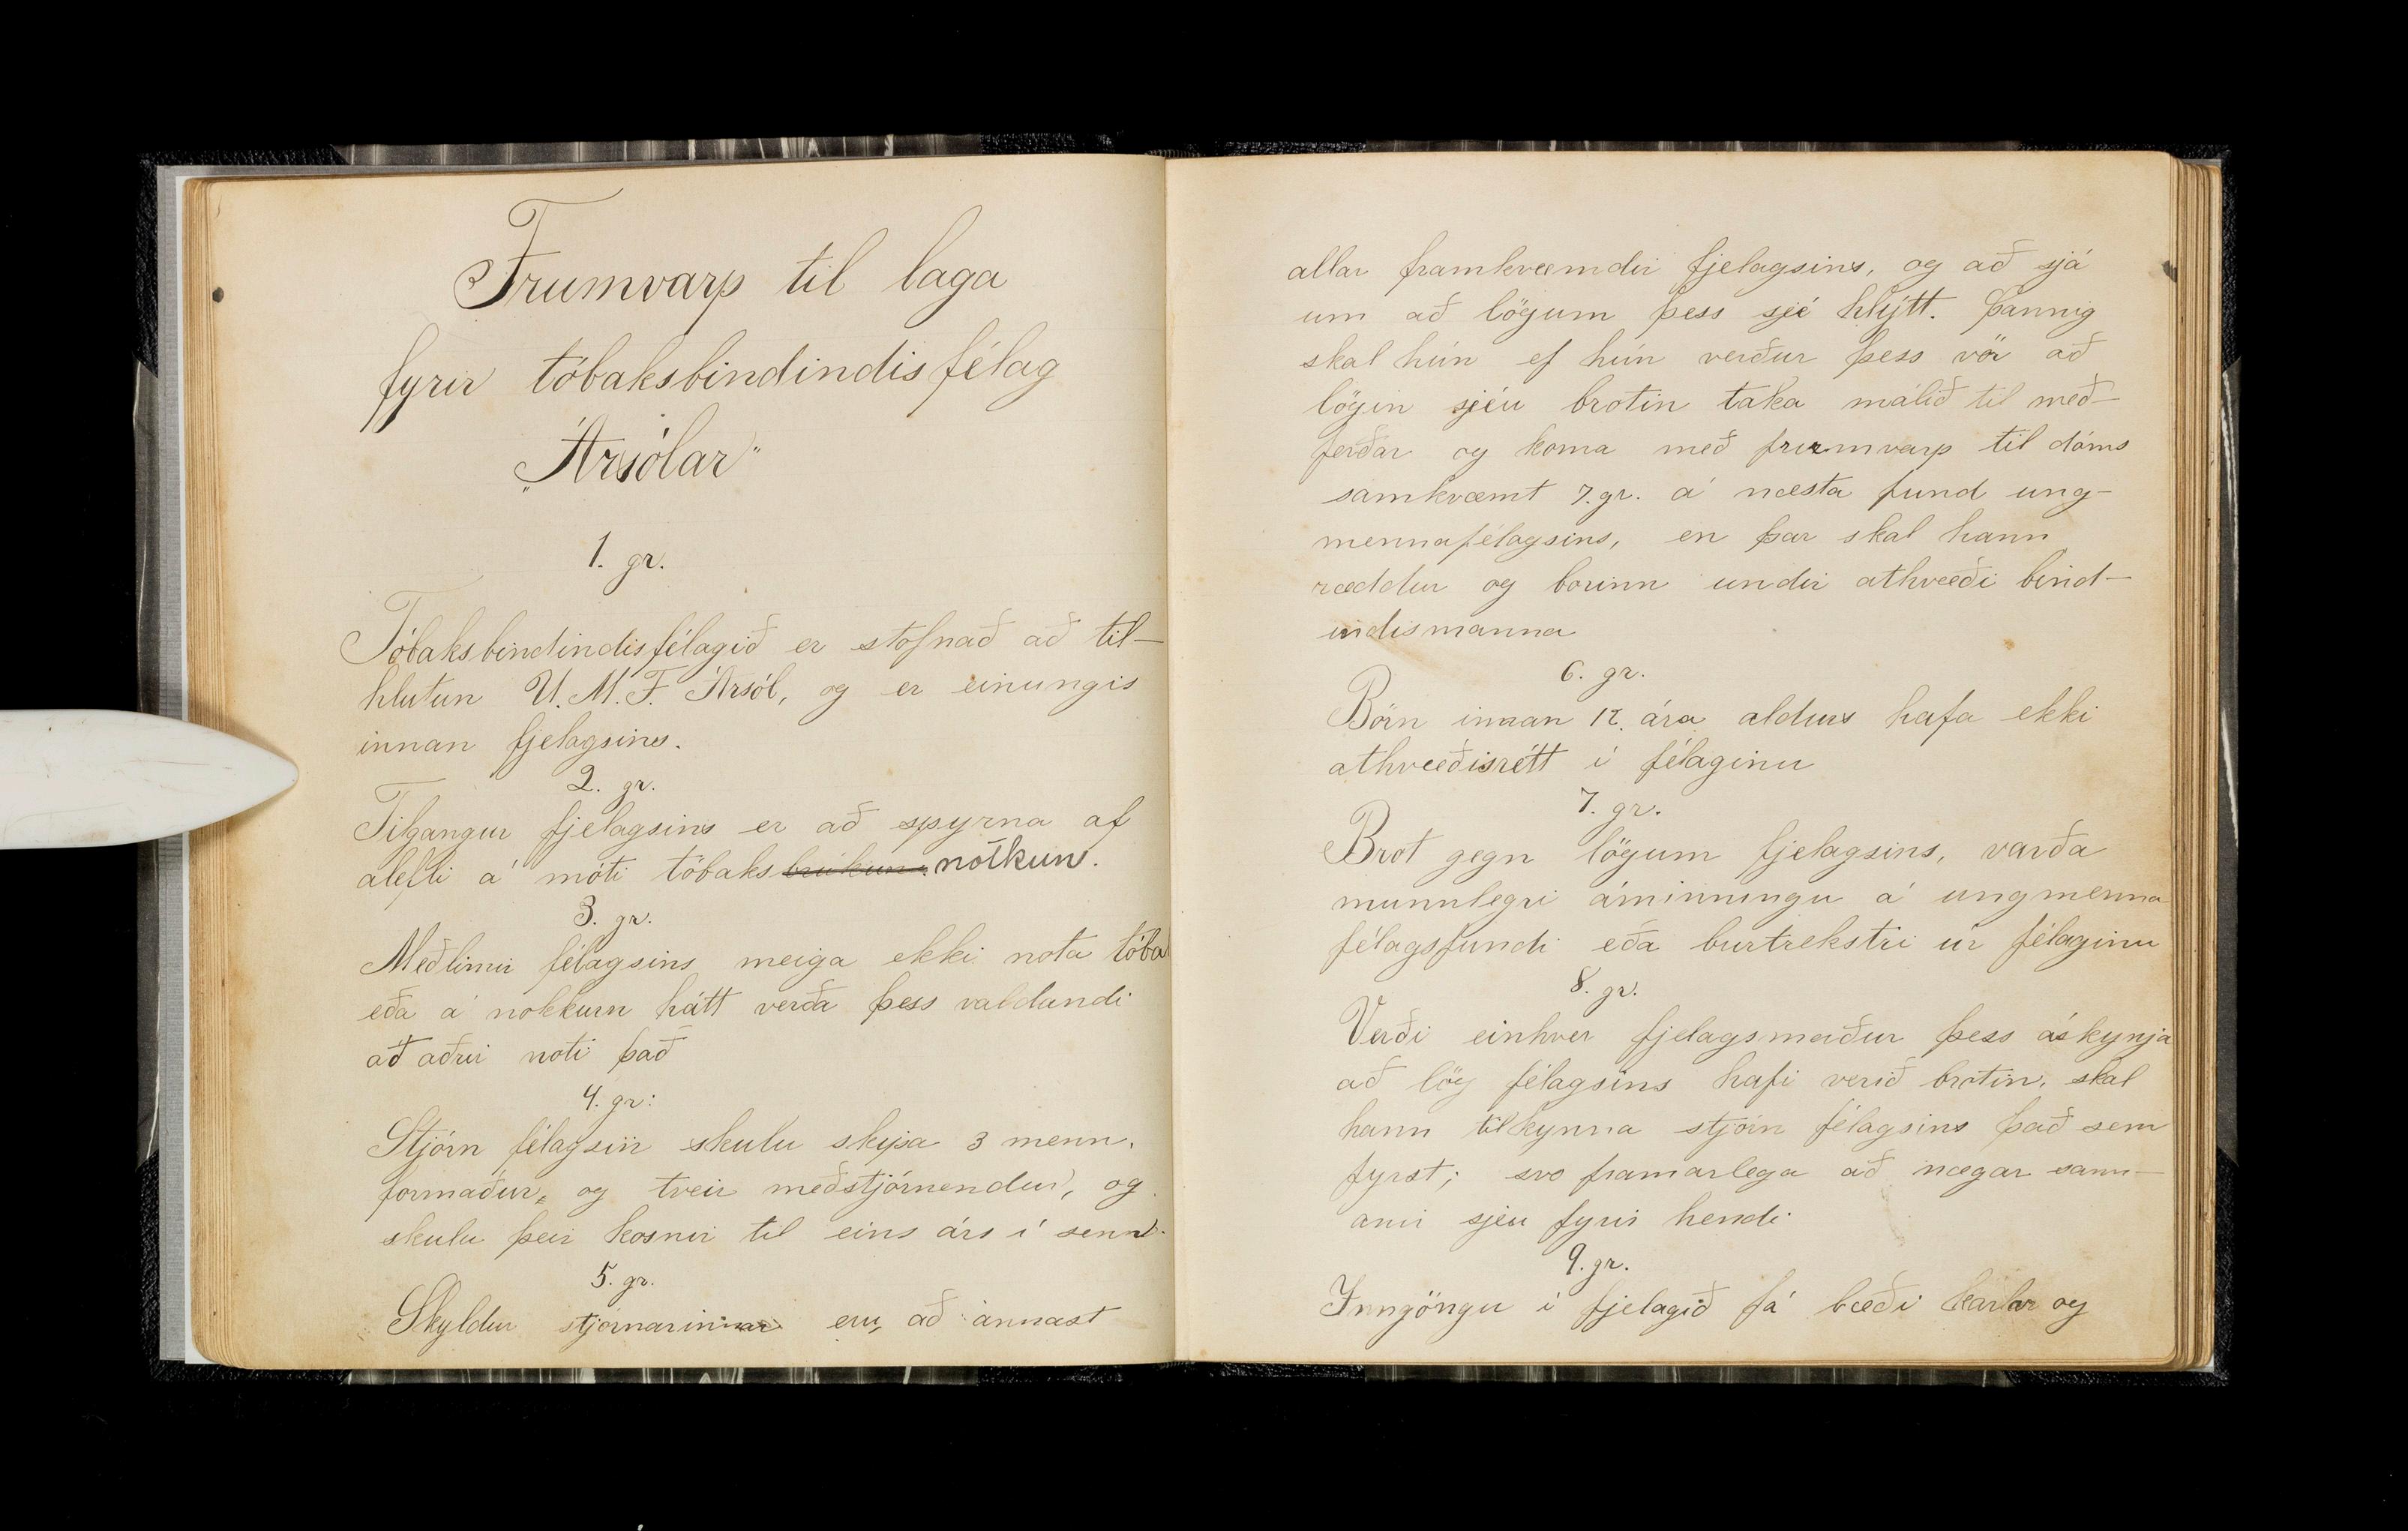 Frumvarp til laga
fyrir tóbaksbindindisfélag
„Ársólar"
1. gr.
Tóbaksbindindisfélagið er stofnað að til-
hlutun U.M.F. Ársól, og er einungis
innan fjelagsins.
2. gr.
Tilgangur fjelagsins er að spyrna af
alefli á móti tóbaks brúkun. notkun.
3. gr.
Meðlimir félagsins meiga ekki nota tóba
eða á nokkurn hátt verða þess valdandi
að aðrir noti það
4. gr:
Stjórn félagsins skulu skipa 3 menn.
formaður, og tveir meðstjórnendur, og
skulu þeir kosnir til eins árs í senn.
5. gr.
Skyldur stjórnarinnar eru, að annast
allar framkvæmdir fjelagsins, og að sjá
um að lögum þess sjé hlýtt. Þannig
skal hún ef hún verður þess vör að
lögin sjéu brotin taka málið til með-
ferðar og koma með frumvarp til dóms
samkvæmt 7. gr. á næsta fund ung-
mennafélagsins, en þar skal hann
ræddur og borinn undir athvæði bind-
indismanna
6. gr.
Börn innan 12. ára aldurs hafa ekki
athvæðisrétt í félaginu
7. gr.
Brot gegn lögum fjelagsins, varða
munnlegri áminningu á ungmenna
félagsfundi eða burtrekstri úr félaginu
8. gr.
Verði einhver fjelagsmaður þess áskynja
að lög félagsins hafi verið brotin, skal
hann tilkynna stjórn félagsins það sem
fyrst; svo framarlega að nægar sann-
anir sjéu fyrir hendi
9. gr.
Inngöngu í fjelagið fá bæði karlar og